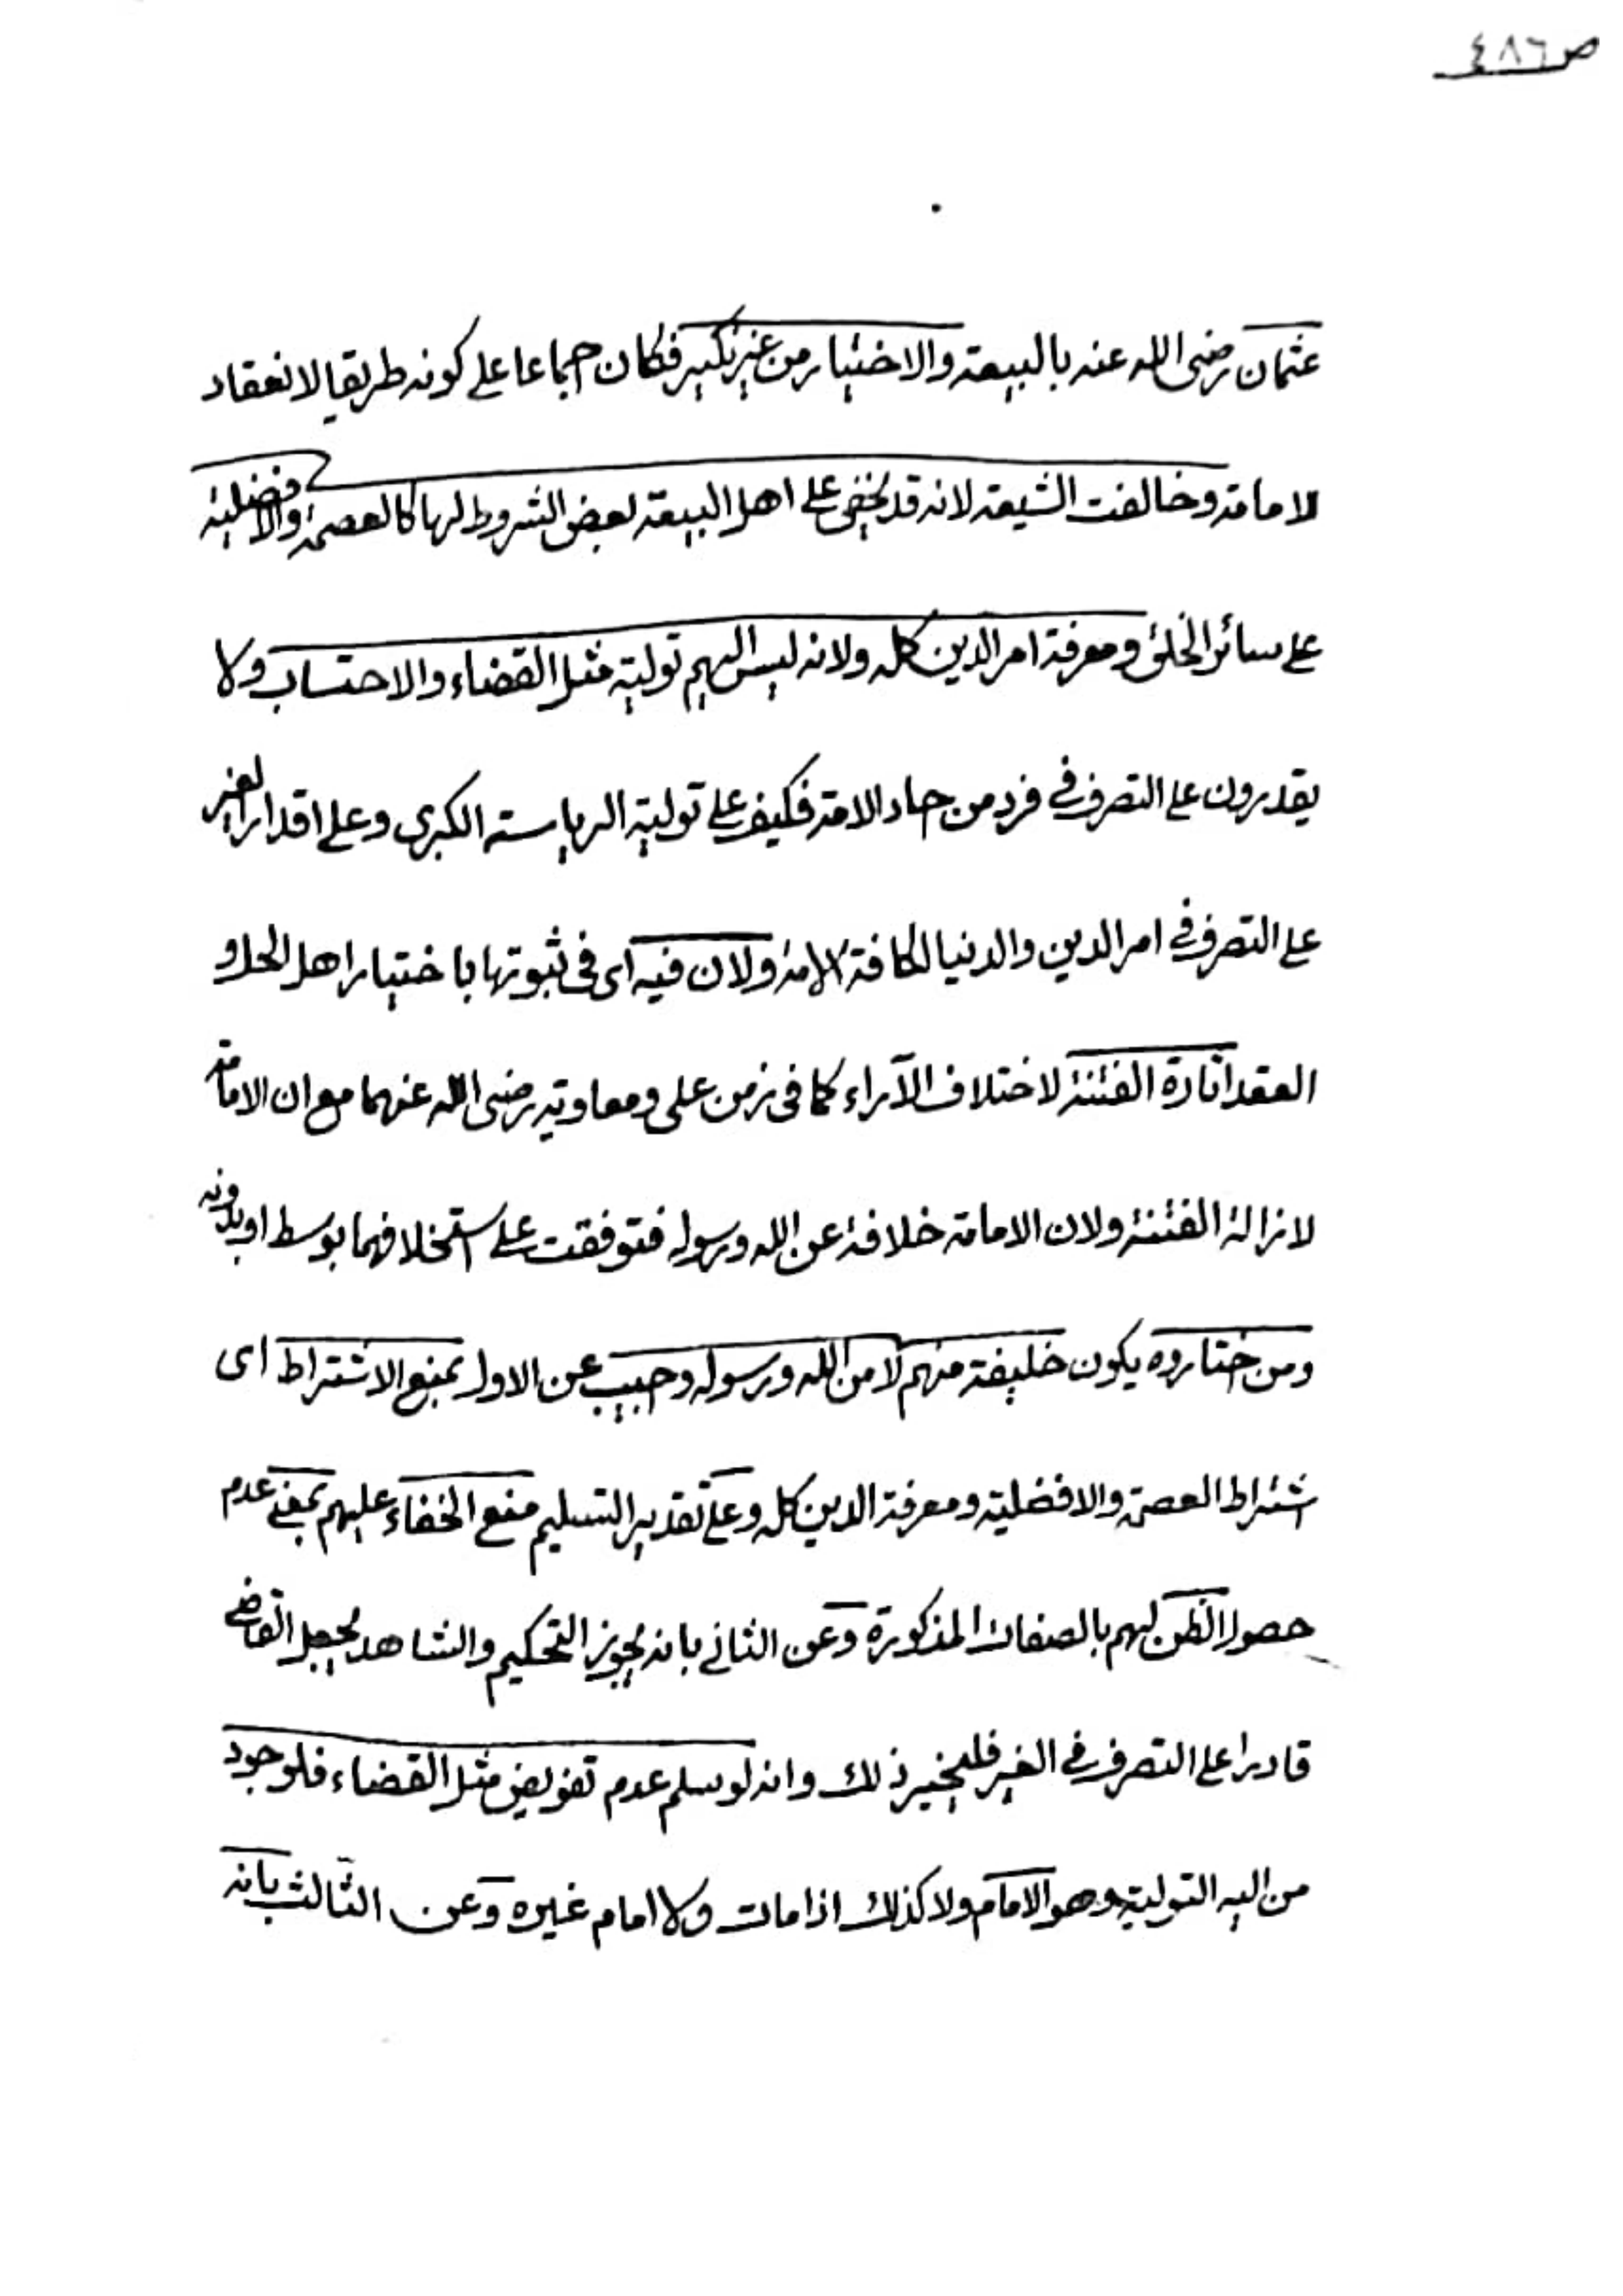 ص٤٨٦
عثمان رضى الله عنه بالبيعة والاختيار من غير نكير فكان جماعا على كونه طريقا لانعقاد
الامامة وخالفت الشيعة لانه قد يخفى على اهل البيعة بعض الشروط لها كالعصمة والافضلية
على سائر الخلق ومعرفة امر الدين كله ولانه ليس اليهم تولية مثل القضاء والاحتساب ولا
يقدرون على التصرف فى فرد من حاد الامة فكيف على تولية الرياسة الكبرى وعلى اقدار الغير
على التصرف فى امر الدين والدنيا لكافة الامة ولان فيه اى فى ثبوتها باختيار اهل الحل و
العقد اثارة الفتنة لاختلاف الآراء كما فى زمن على ومعاوية رضى الله عنهما مع ان الامامة
لازالة الفتنة ولان الامامة خلافة عن الله ورسوله فتوقفت على استخلافهما بوسط او بدونه
ومن ختاروه يكون خليفة منهم لا من الله ورسوله وجيب عن الاول بمنع الاشتراط اى
شتراط العصمة والافضلية ومعرفة الدين كله وعلى تقدير التسليم منع الخفاء عليهم بمعنى عدم
حصول الظن لهم بالصفات المذكورة وعن الثانى بانه يجوز التحكيم والشاهد يجعل القاضى
قادرا على التصرف فى الغير فليخير ذلك وانه لو سلم عدم تفويض مثل القضاء فلوجود
من اليه التولية وهو الامام ولا كذلك اذا مات ولا امام غيره وعن الثالث بانه